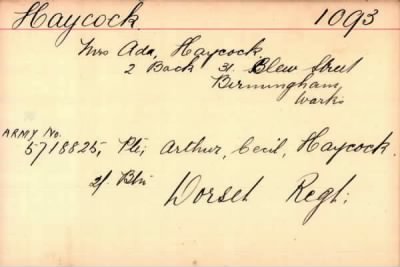 Haycock. 1093
Mrs Ada, Haycock
2 Back 31. Blew Street
Birmingham
Warks
ARMY No.
5718825, Pte, Arthur, Cecil, Haycock.
2/ Btn
Dorset Regt;